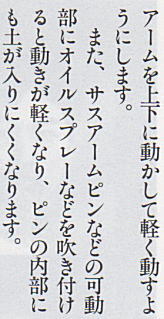 アームを上下に動かして軽く動すよ
うにします。
また、サスアームピンなどの可動
部にオイルスプレーなどを吹き付け
ると動きが軽くなり、ピンの内部に
も土が入りにくくなります。